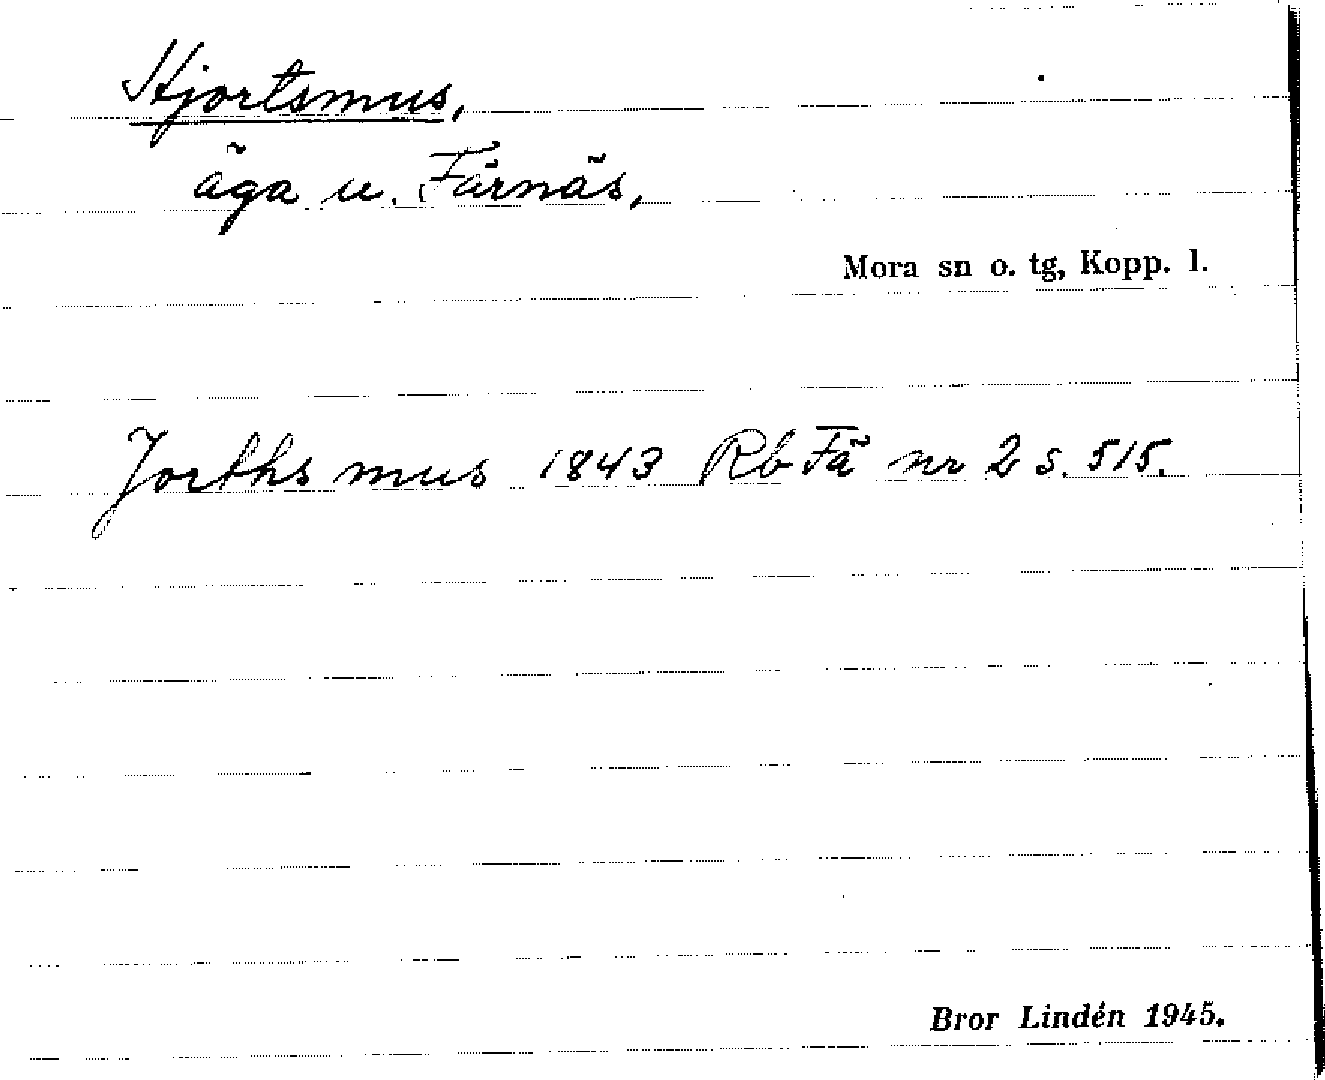 Hjortsmus,
äga u. Färnäs,
Mora sn o. tg, Kopp. l.
Jorths mus 1843 Rb Fä nr 2 s. 515.
Bror Lindén 1945.